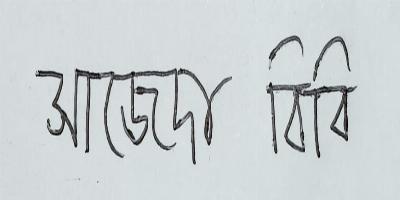 আজেদা বিবি